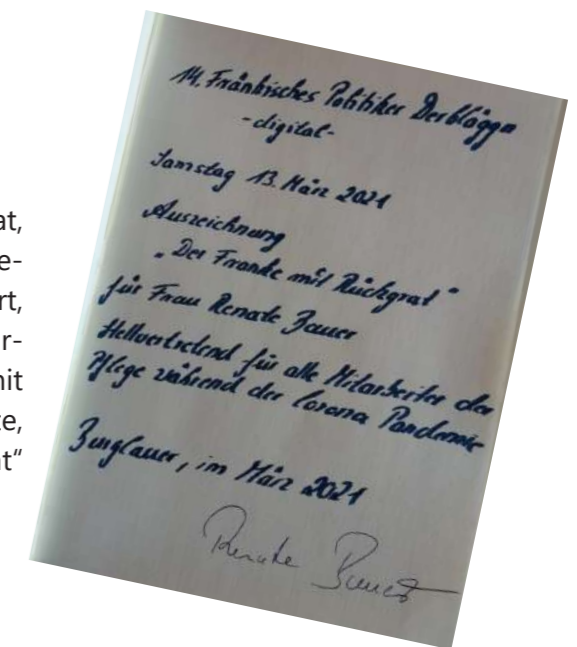 at,
e-
ert,
r-
nit
te,
t“
14. Fränkisches Politiker Derbläggn
-digital-
Samstag 13. März 2021
Auszeichnung
„Der Franke mit Rückgrat“
für Frau Renate Bauer
stellvertretend für alle Mitarbeiter der
Pflege während der Corona Pandemie
Burglauer, im März 2021
Renate Bauer